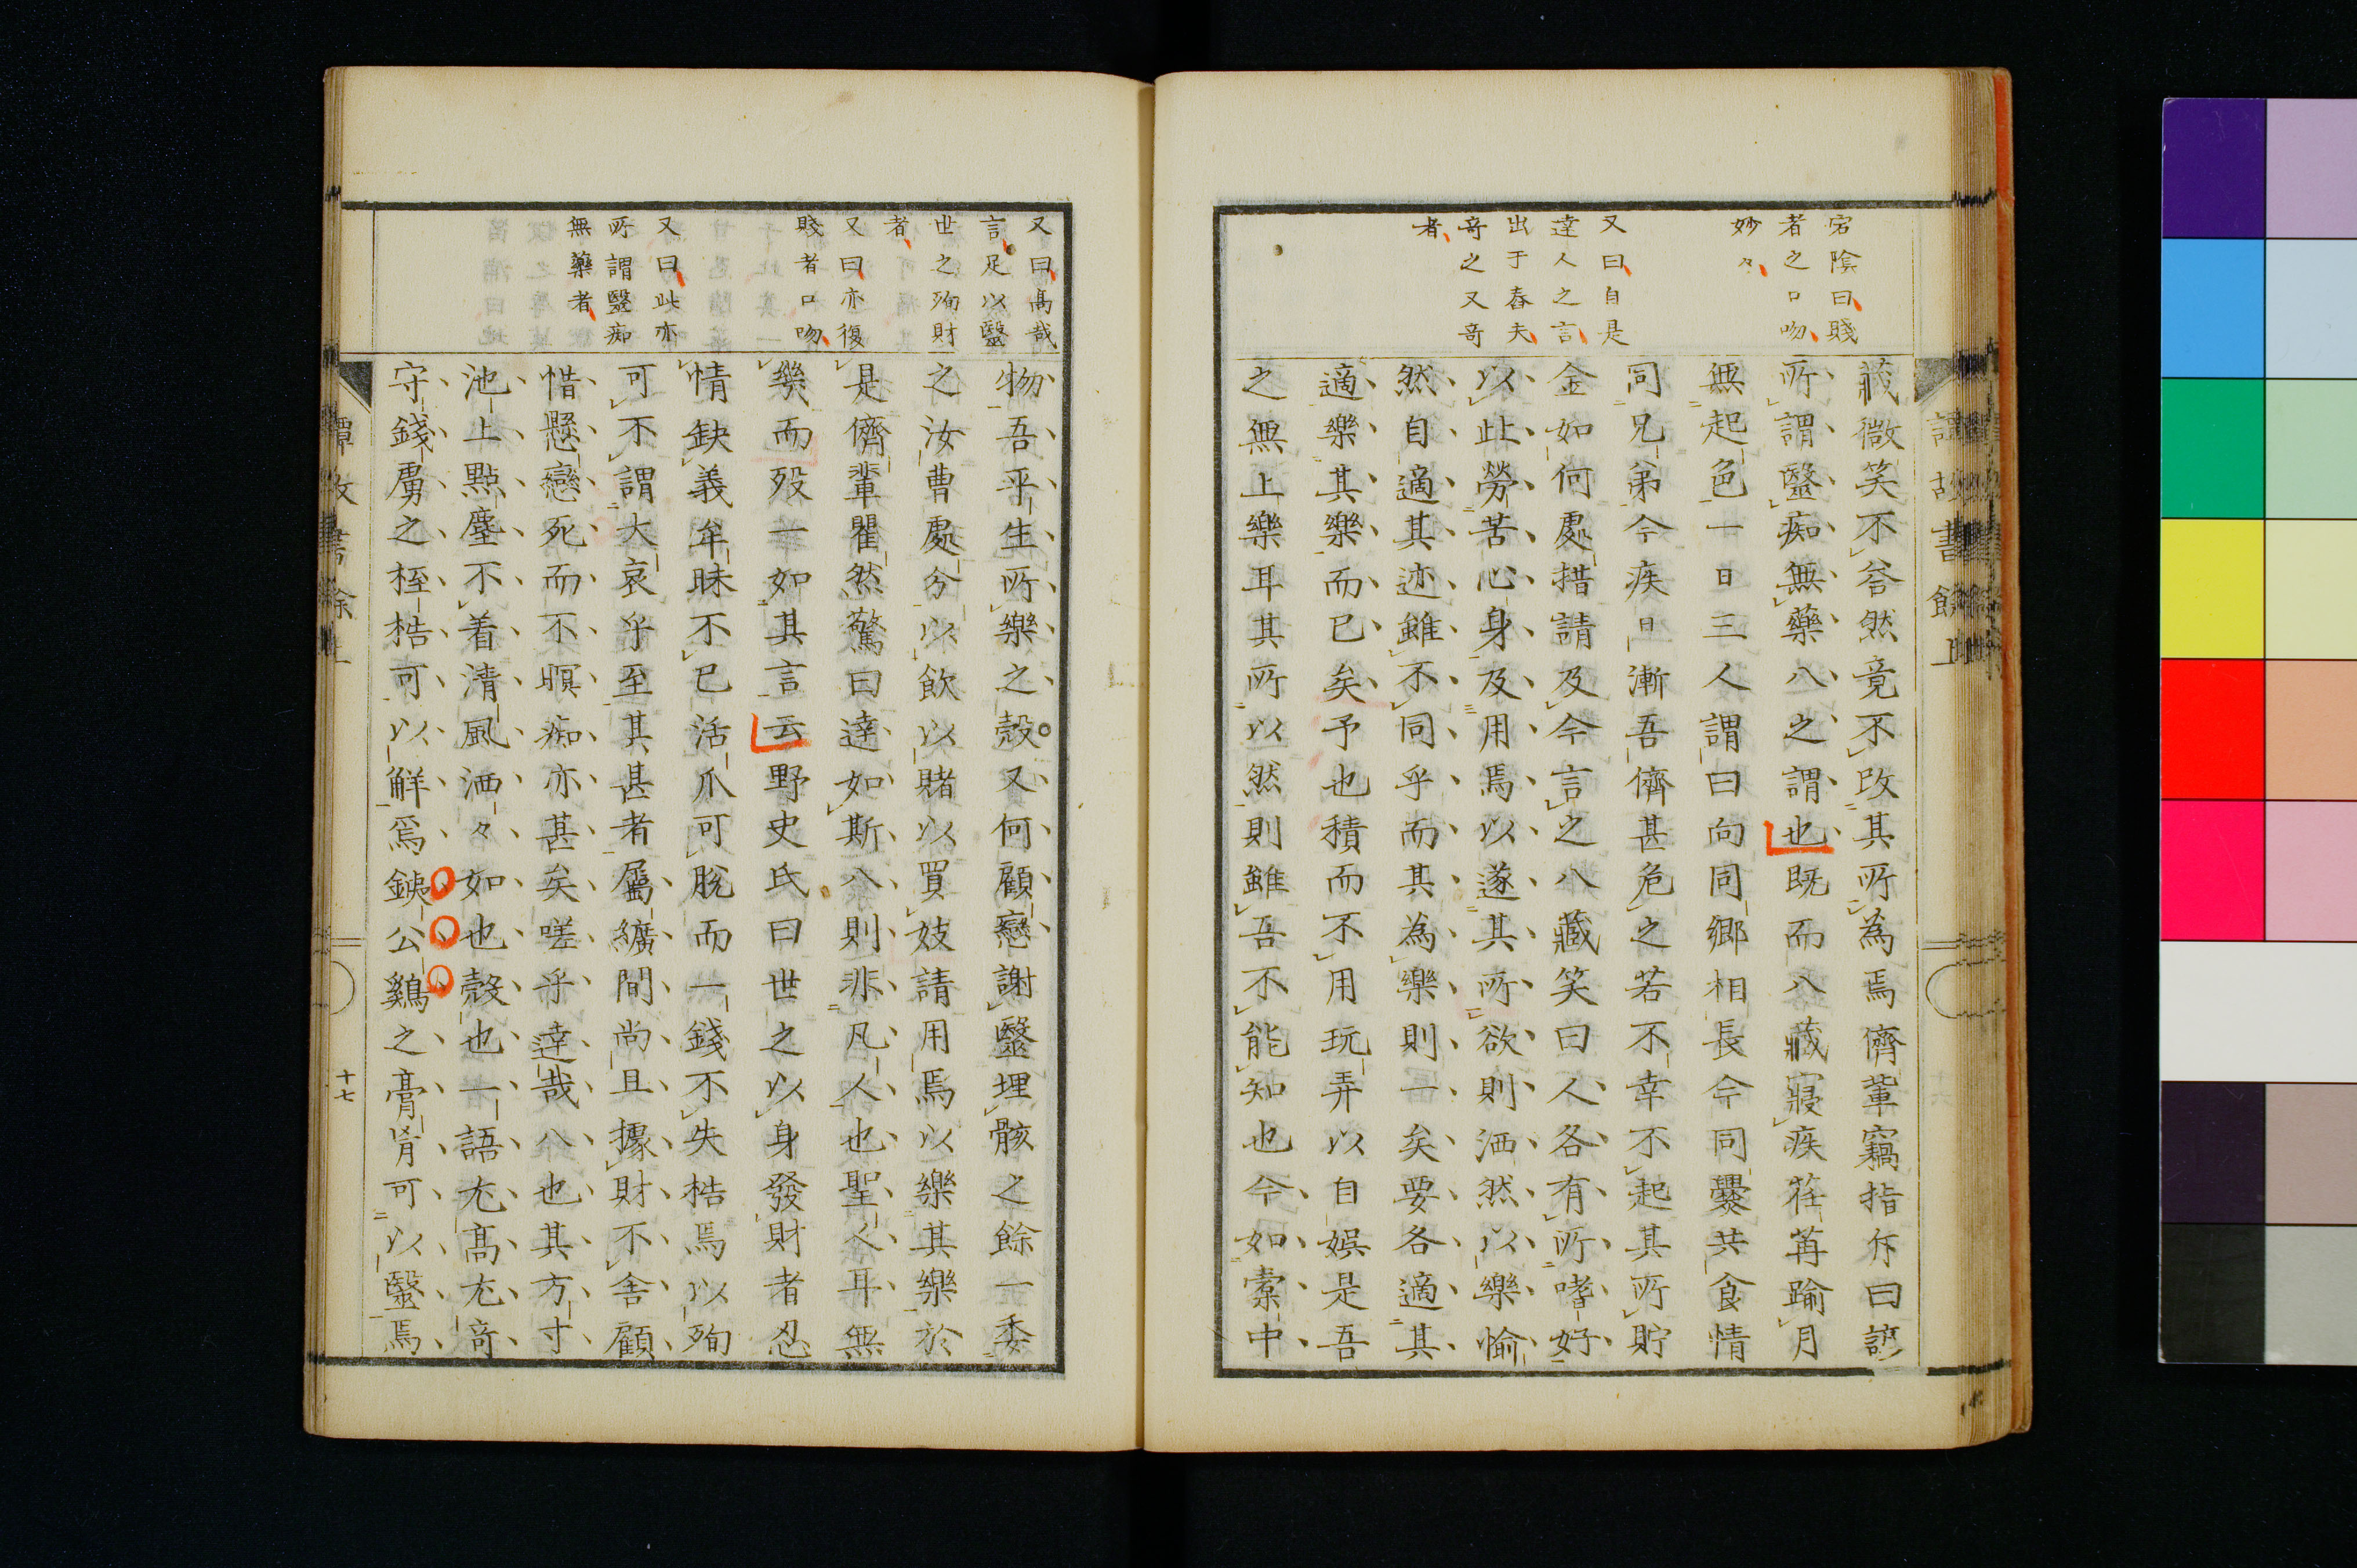 宕陰曰賤
者之口吻
妙々
又曰自是
達人之言
出于舂夫
奇之又奇
者
藏微笑不答然竟不改其所為焉儕輩竊指斥曰諺
所謂毉痴無藥八之謂也既而八藏寢疾荏苒踰月
無起色一日三人謂曰向同鄉相長今同爨共食情
同兄弟今疾日漸吾儕甚危之若不幸不起其所貯
金如何處措請及今言之八藏笑曰人各有所嗜好
以此勞苦心身及用焉以遂其所欲則洒然以樂愉
然自適其迹雖不同乎而其為樂則一矣要各適其
適樂其樂而已矣予也積而不用玩弄以自娯是吾
之無上樂耳其所以然則雖吾不能知也今如槖中
又曰高哉
言足以毉
世之殉財
者
又曰亦復
賤者口吻
又曰此亦
所謂毉痴
無藥者
物吾平生所樂之殼又何顧戀謝毉埋骸之餘一委
之汝曹處分以飲以賭以買妓請用焉以樂其樂於
是儕輩瞿然驚曰達如斯八則非凡人也聖人耳無
幾而歿一如其言云野史氏曰世之以身發財者忍
情缺義牟昧不已活爪可脫而一錢不失梏焉以殉
可不謂大哀乎至其甚者屬纊間尚且據財不舍顧
惜懸戀死而不瞑痴亦甚矣嗟乎達哉八也其方寸
池上點塵不着清風洒々如也殼也一語尤高尤奇
守錢虜之桎梏可以解焉銕公鷄之膏肓可以毉焉
十七